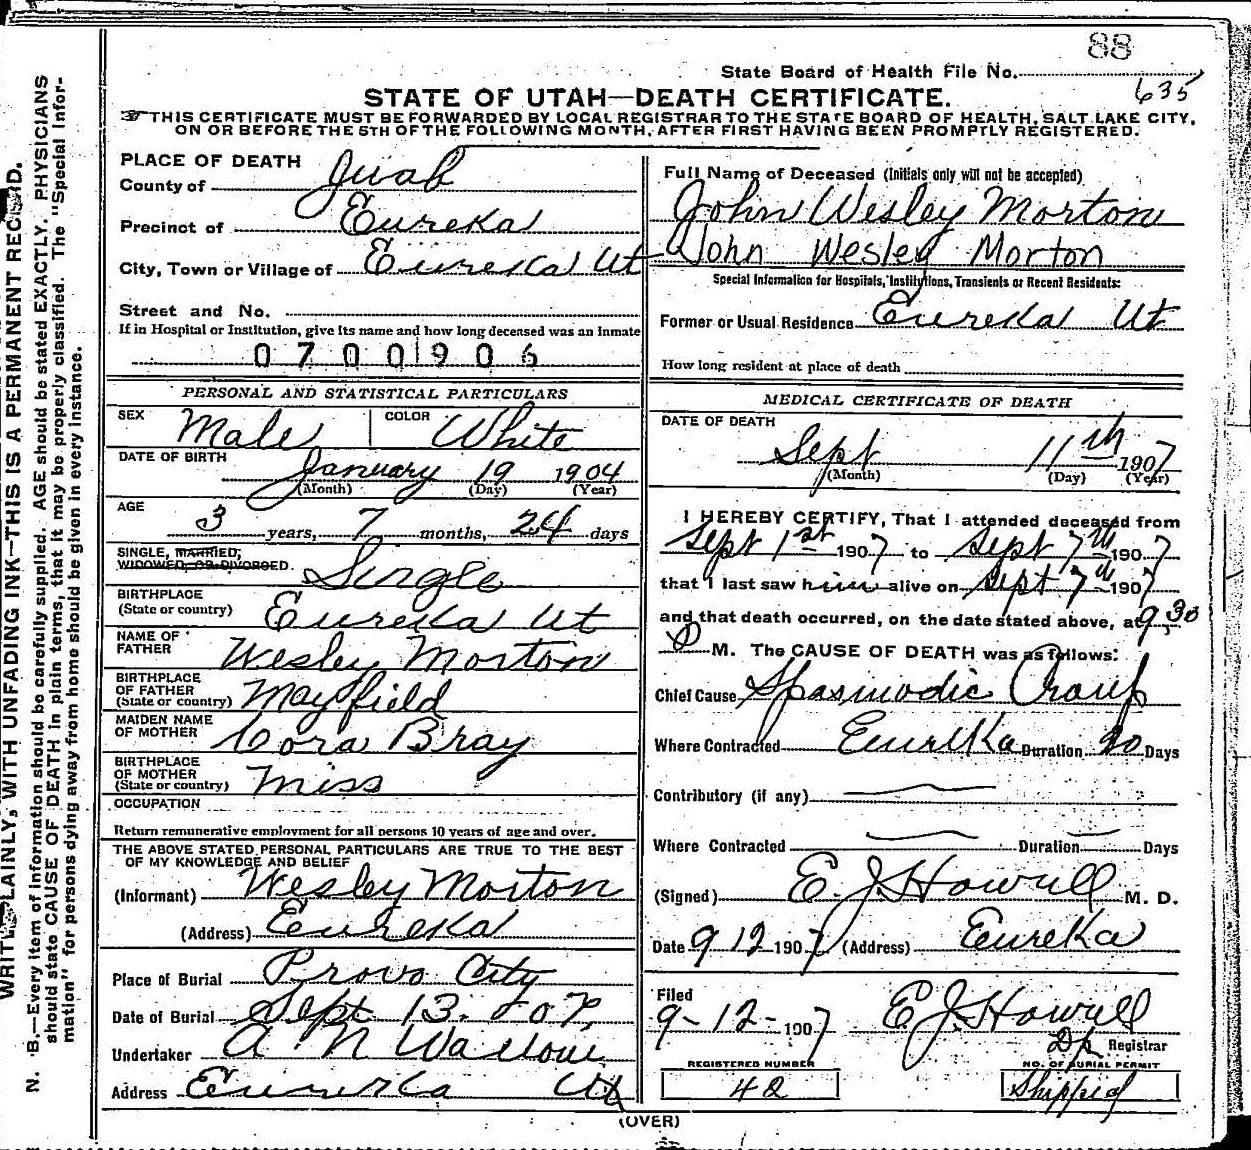 88
State Board of Health File No.
635
STATE OF UTAH—DEATH CERTIFICATE.
THIS CERTIFICATE MUST BE FORWARDED BY LOCAL REGISTRAR TO THE STATE BOARD OF HEALTH, SALT LAKE CITY,
ON OR BEFORE THE 5TH OF THE FOLLOWING MONTH, AFTER FIRST HAVING BEEN PROMPTLY REGISTERED.
WRITE PLAINLY, WITH UNFADING INK—THIS IS A PERMANENT RECORD.
N. B.—Every item of information should be carefully supplied. AGE should be stated EXACTLY. PHYSICIANS
should state CAUSE OF DEATH in plain terms, that it may be properly classified. The "Special Infor-
mation" for persons dying away from home should be given in every instance.
PLACE OF DEATH
County of Juab
Precinct of Eureka
City, Town or Village of Eureka Ut
Street and No.
If in Hospital or Institution, give its name and how long deceased was an inmate
0700906
PERSONAL AND STATISTICAL PARTICULARS
SEX Male COLOR White
DATE OF BIRTH January 19 1904
(Month) (Day) (Year)
AGE 3 years, 7 months, 24 days
SINGLE, MARRIED,
WIDOWED, OR DIVORCED. Single
BIRTHPLACE
(State or country) Eureka Ut
NAME OF
FATHER Wesley Morton
BIRTHPLACE
OF FATHER
(State or country) Mayfield
MAIDEN NAME
OF MOTHER Cora Bray
BIRTHPLACE
OF MOTHER
(State or country) Miss
OCCUPATION
Return remunerative employment for all persons 10 years of age and over.
THE ABOVE STATED PERSONAL PARTICULARS ARE TRUE TO THE BEST
OF MY KNOWLEDGE AND BELIEF
(Informant) Wesley Morton
(Address) Eureka
Place of Burial Provo City
Date of Burial Sept 13.
Undertaker A N
Address Eureka Ut
Full Name of Deceased (Initials only will not be accepted)
John Wesley Morton
John Wesley Morton
Special Information for Hospitals, Institutions, Transients or Recent Residents:
Former or Usual Residence Eureka Ut
How long resident at place of death
MEDICAL CERTIFICATE OF DEATH
DATE OF DEATH
Sept 11th 1907
(Month) (Day) (Year)
I HEREBY CERTIFY, That I attended deceased from
Sept 1st 1907 to Sept 7th 1907
that I last saw him alive on Sept 7th 1907
and that death occurred, on the date stated above, at 9 30
P M. The CAUSE OF DEATH was as follows:
Chief Cause Spasmodic Croup
Where Contracted Eureka Duration Days
Contributory (if any)
Where Contracted Duration Days
(Signed) E. J. Howell M. D.
Date 9 12 1907 (Address) Eureka
Filed
9-12-1907 E J. Howell
Dp Registrar
REGISTERED NUMBER
42
NO. OF BURIAL PERMIT
Shipped
(OVER)